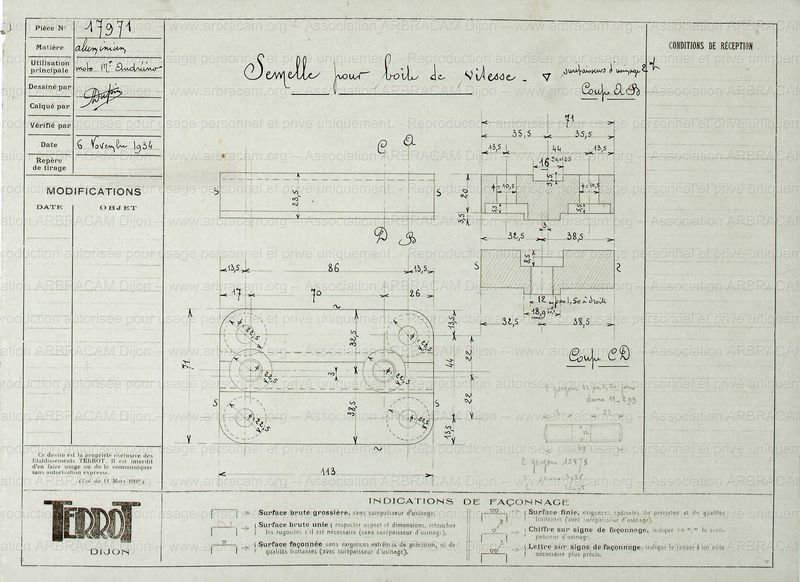 Pièce N° 17971
Matière aluminium
Utilisation principale moto Mr Andréino
Dessiné par
Calqué par
Vérifié par
Date 6 Novembre 1934
Repère de tirage
MODIFICATIONS
DATE OBJET
Semelle pour boite de vitesse.
surépaisseurs d'usinage 2
Coupe A B
CONDITIONS DE RÉCEPTION
C A
S 23,5 S
D B
71
35,5 35,5
13,5 44 13,5
16
10,5 10,5
20
3,5
3
32,5 38,5
S 8,5
12 pas 1,50 à droite
18,9
32,5 38,5
Coupe C D
13,5 86 13,5
17 70 26
22,5 22,5
32,5 13,5
71 22,5 3 22,5 44 22
S 38,5 S 22
22,5 22,5 13,5
113
12
2 goujons 15878
Ce dessin est la propriété exclusive des
Etablissements TERROT. Il est interdit
d'en faire usage ou de le communiquer
sans autorisation expresse.
(Loi du 11 Mars 1902).
TERROT
DIJON
INDICATIONS DE FAÇONNAGE
Surface brute grossière, sans surépaisseur d'usinage.
Surface brute unie; respecter aspect et dimensions, retoucher
les rugosités s'il est nécessaire (sans surépaisseur d'usinage).
Surface façonnée sans exigences extrêmes de précision, ni de
qualités frottantes (avec surépaisseur d'usinage).
Surface finie, exigences spéciales de précision et de qualités
frottantes (avec surépaisseur d'usinage).
Chiffre sur signe de façonnage, indique en m/m la surépaisseur d'usinage.
Lettre sur signe de façonnage, indique le renvoi à un sens
nécessaire plus précis.
www.arbracam.org - Association ARBRACAM Dijon - Reproduction autorisée pour usage personnel et privé uniquement.